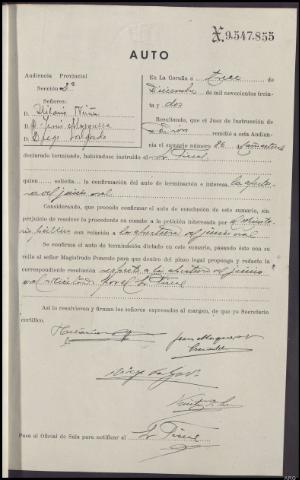 X.9.547.855
AUTO
Audiencia Provincial
Sección 2ª
Señores:
D. Hilario Núñez
D.
D. Diego
En La Coruña a trece de
Diciembre de mil novecientos treinta
y dos
Resultando, que el Juez de Instrucción de
remitió a esta Audiencia
el sumario
declarado terminado, habiéndose instruído el Sr. Fiscal
quien solicita la confirmación del auto de terminación e interesa la apertu-
ra del juicio oral
Considerando, que procede confirmar el auto de conclusión de este sumario, sin
perjuicio de resolver lo procedente en cuanto a la petición interesada por el Ministe-
rio público con relación a la apertura del juicio oral
Se confirma el auto de terminación dictado en este sumario, pasando éste con su
rollo al señor Magistrado Ponente para que dentro del plazo legal proponga y redacte la
correspondiente resolución respecto a la apertura del juicio
oral solicitada por el Sr. Fiscal
Así lo resolvieron y firman los señores expresados al margen, de que yo Secretario
certifico.
Hilario
Pasa al Oficial de Sala para notificar al Sr. Fiscal